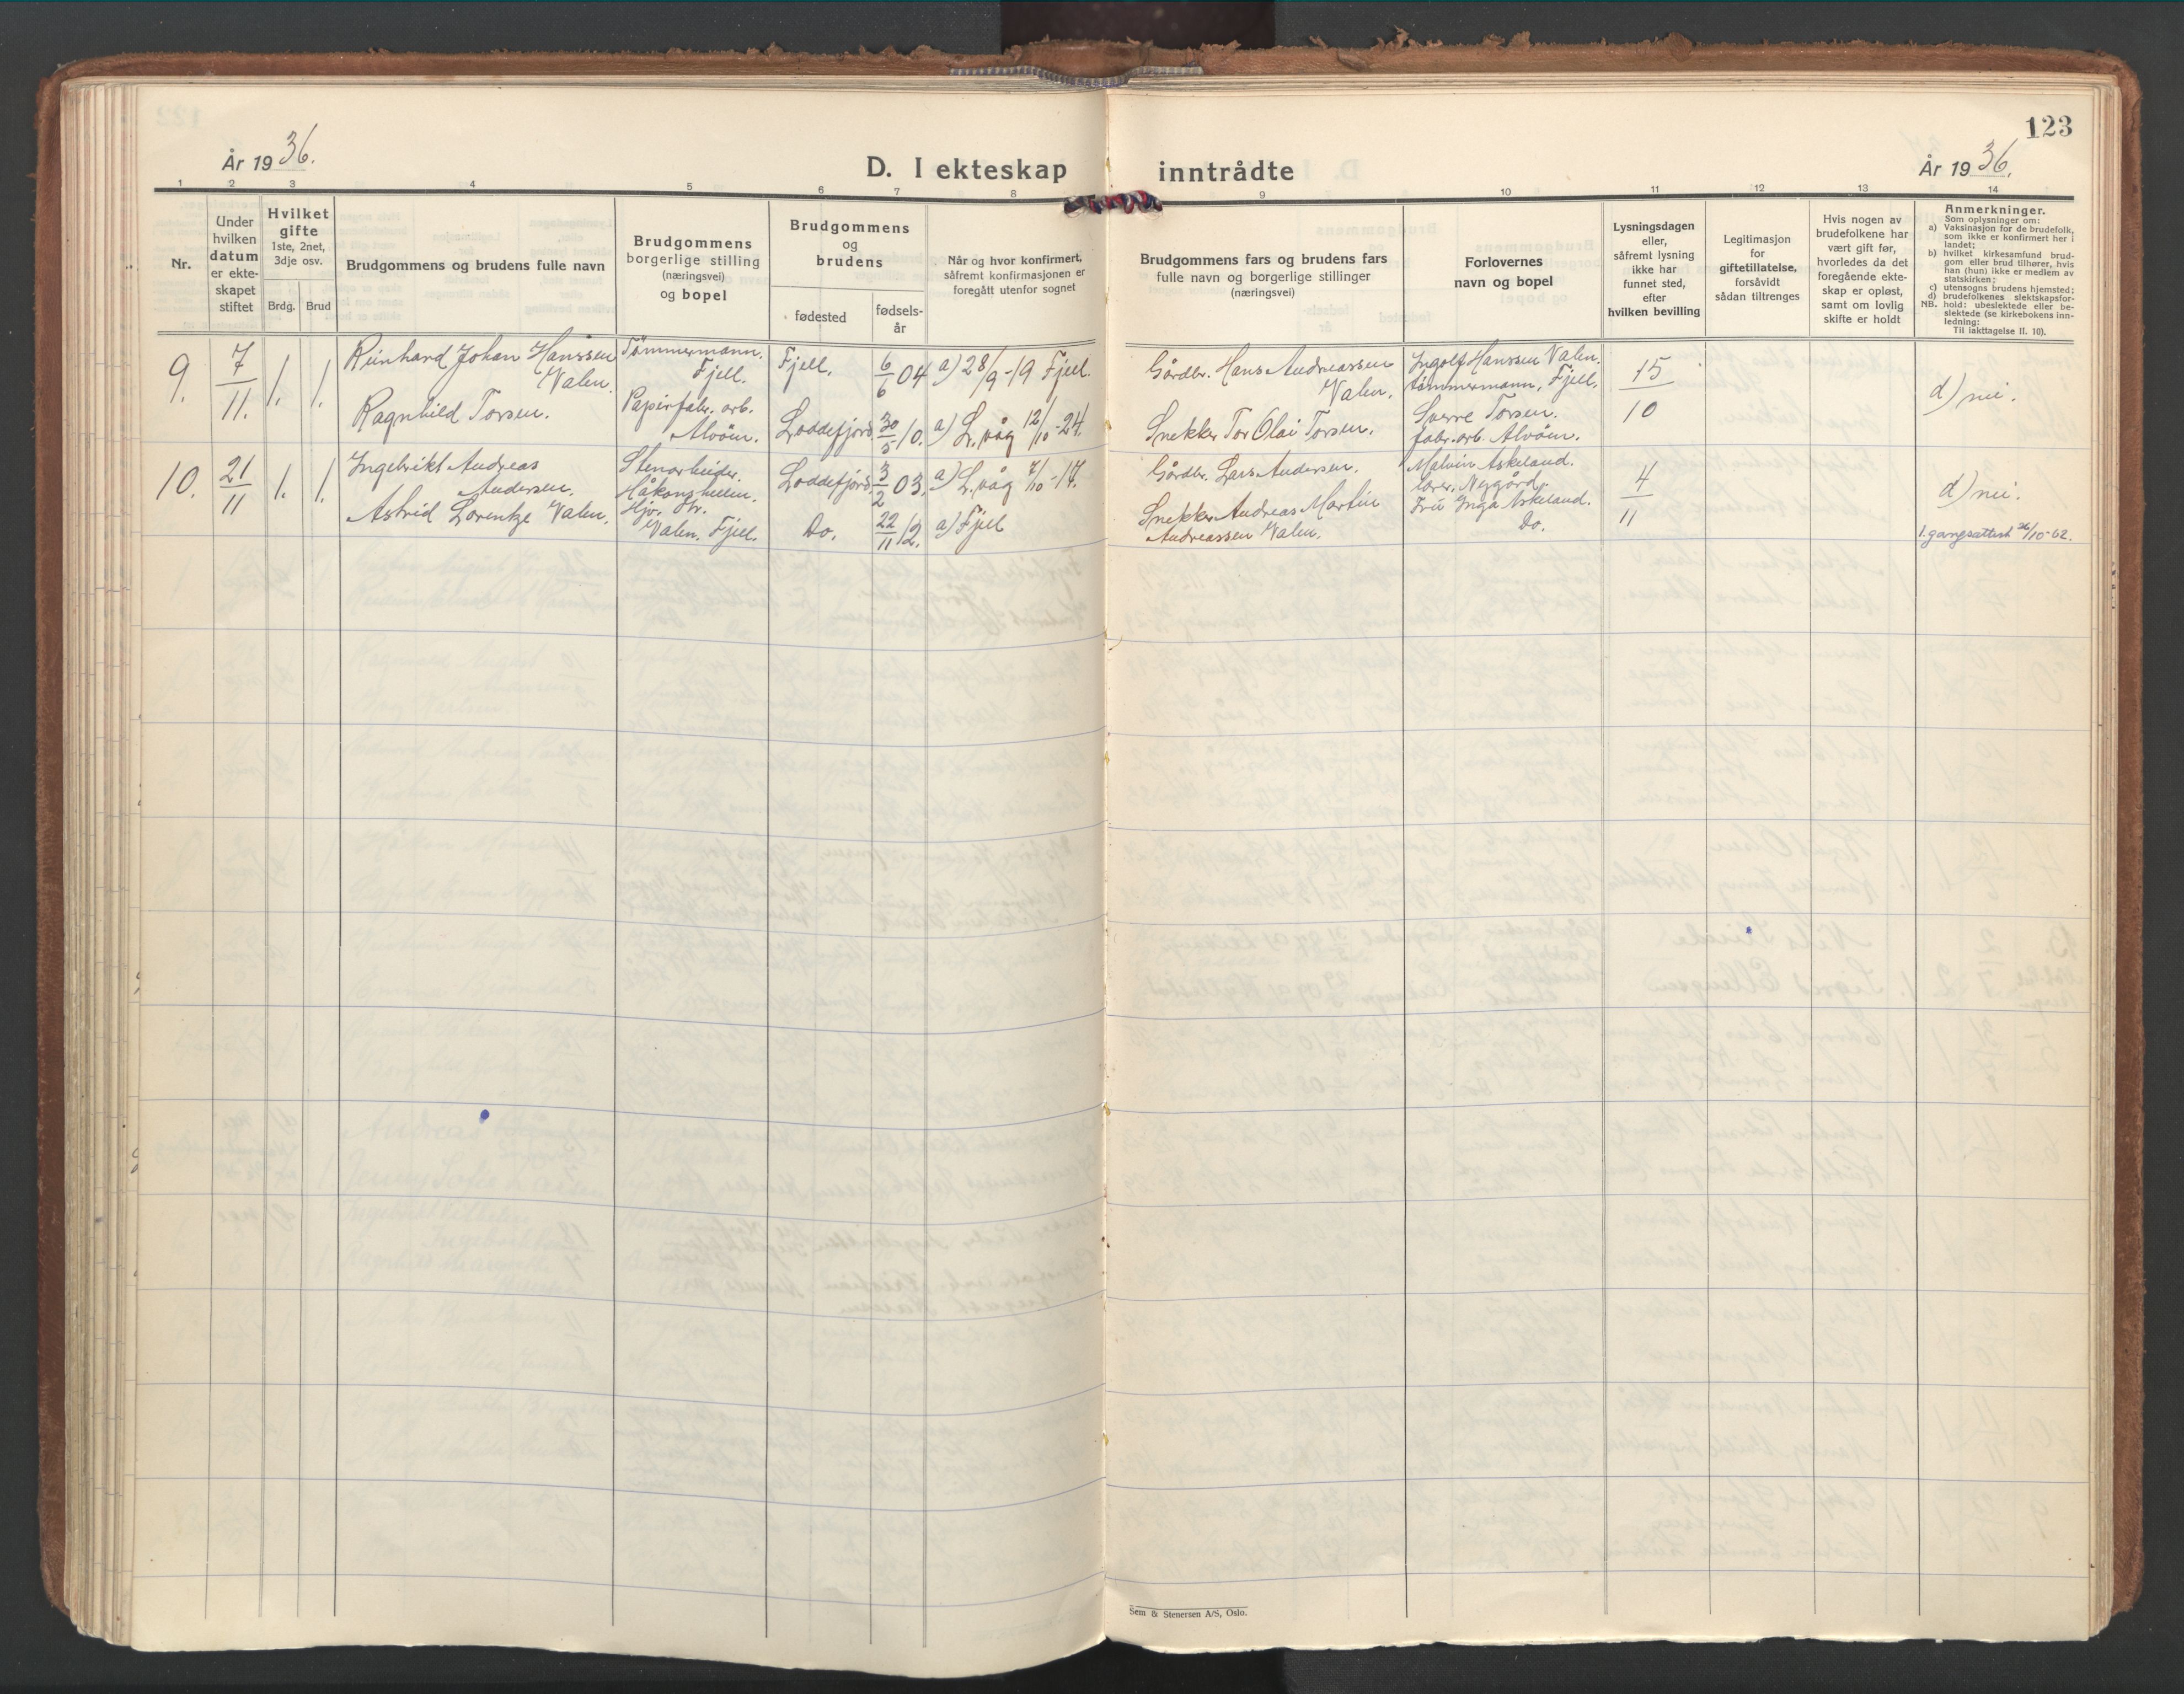 123
År 1936.
D. I ekteskap inntrådte
År 1936.
1 2 3 4 5 6 7 8 9 10 11 12 13 14
Nr.
Under hvilken datum er ekteskapet stiftet
Hvilket gifte
1ste, 2net, 3dje osv.
Brdg. Brud
Brudgommens og brudens fulle navn
Brudgommens borgerlige stilling (næringsvei) og bopel
Brudgommens og brudens
fødested
fødselsår
Når og hvor konfirmert, såfremt konfirmasjonen er foregått utenfor sognet
Brudgommens fars og brudens fars fulle navn og borgerlige stillinger (næringsvei)
Forlovernes navn og bopel
Lysningsdagen eller, såfremt lysning ikke har funnet sted, efter hvilken bevilling
Legitimasjon for giftetillatelse, forsåvidt sådan tiltrenges
Hvis nogen av brudefolkene har vært gift før, hvorledes da det foregående ekteskap er opløst, samt om lovlig skifte er holdt
Anmerkninger.
Som oplysninger om:
a) Vaksinasjon for de brudefolk, som ikke er konfirmert her i landet;
b) hvilket kirkesamfund brudgom eller brud tilhører, hvis han (hun) ikke er medlem av statskirken;
c) utensogns brudens hjemsted;
d) brudefolkenes slektskapsforhold: ubeslektede eller beslektede (se kirkebokens innledning:
NB.
Til iakttagelse II. 10).
9. 7/11. 1. 1.
Reinhard Johan Hanssen Valen.
Tømmermann. Fjell.
Fjell. 6/6 04 a) 28/9-19 Fjell.
Gårdbr. Hans Andreassen Valen.
Ingolf Hanssen Valen. tømmermann, Fjell.
15/10
d) nei.
Ragnhild Torsen.
Papirfabr. arb. Alvøen.
Loddefjord 30/5 10. a) L. våg 12/10-24.
Snekker Tor Olai Torsen.
Sverre Torsen. fabr. arb. Alvøen.
10. 21/11 1. 1.
Ingebrikt Andreas Andersen.
Stenarbeider. Håkonshellen.
Loddefjord 3/2 03. a) L. våg 7/10-17.
Gårdbr. Lars Andersen.
Malvin Askeland. lærer, Nygård.
4/11
d) nei.
Astrid Lorentze Valen.
Hjv. Str. Valen. Fjell.
Do. 22/11 12. a) Fjell
Snekker Andreas Martin Andreassen Valen.
Fru Inga Askeland. Do.
1. gangsattest 26/10-62.
Sem & Stenersen A/S, Oslo.